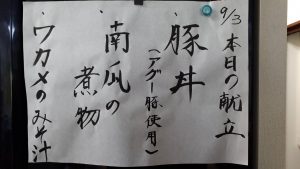 9/3 本日の献立
・豚丼
(アグー豚使用)
・南瓜の
煮物
・ワカメのみそ汁